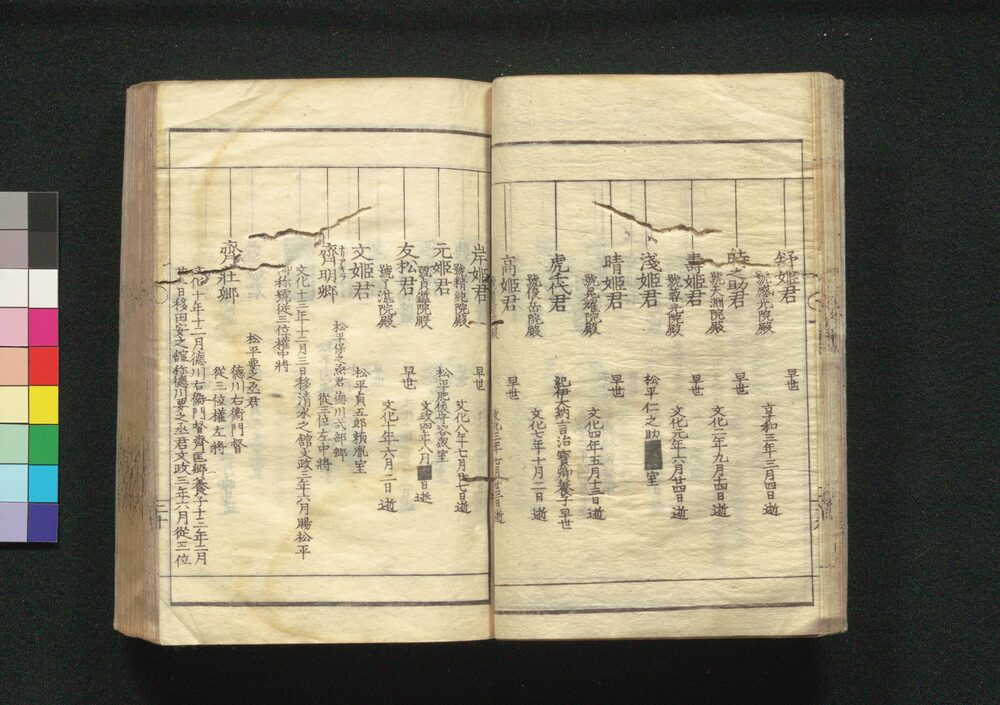 舒姫君
早世
享和三年三月四日 逝
時之助君
早世
文化二年九月十四日 逝
壽姫君
號蓉光院殿
早世
文化元年六月廿四日 逝
淺姫君
松平仁之助 室
晴姫君
號晃耀院殿
早世
文化四年五月十三日 逝
虎千代君
號俊岳院殿
紀伊大納言治寶卿養子早世
文化七年十月二日 逝
高姫君
早世
岸姫君
號精純院殿
早世
文化八年七月廿七日 逝
元姫君
松平肥後守容衆室
文政四年八月 日 逝
友松君
號了湛院殿
早世
文化十年六月二日 逝
文姫君
松平貞五郎頼胤室
齊明郷
松平保之丞君 德川式部郷
從三位左中將
文化十三年十二月三日移清水之舘文政三年六月賜松平
称號從三位權中將
齊莊郷
松平要之丞君
德川右衛門督
從三位權左將
文化十年十二月德川右衛門督齊匡郷養子十三年二月
日移田安之舘称德川要之丞君文政三年六月從三位